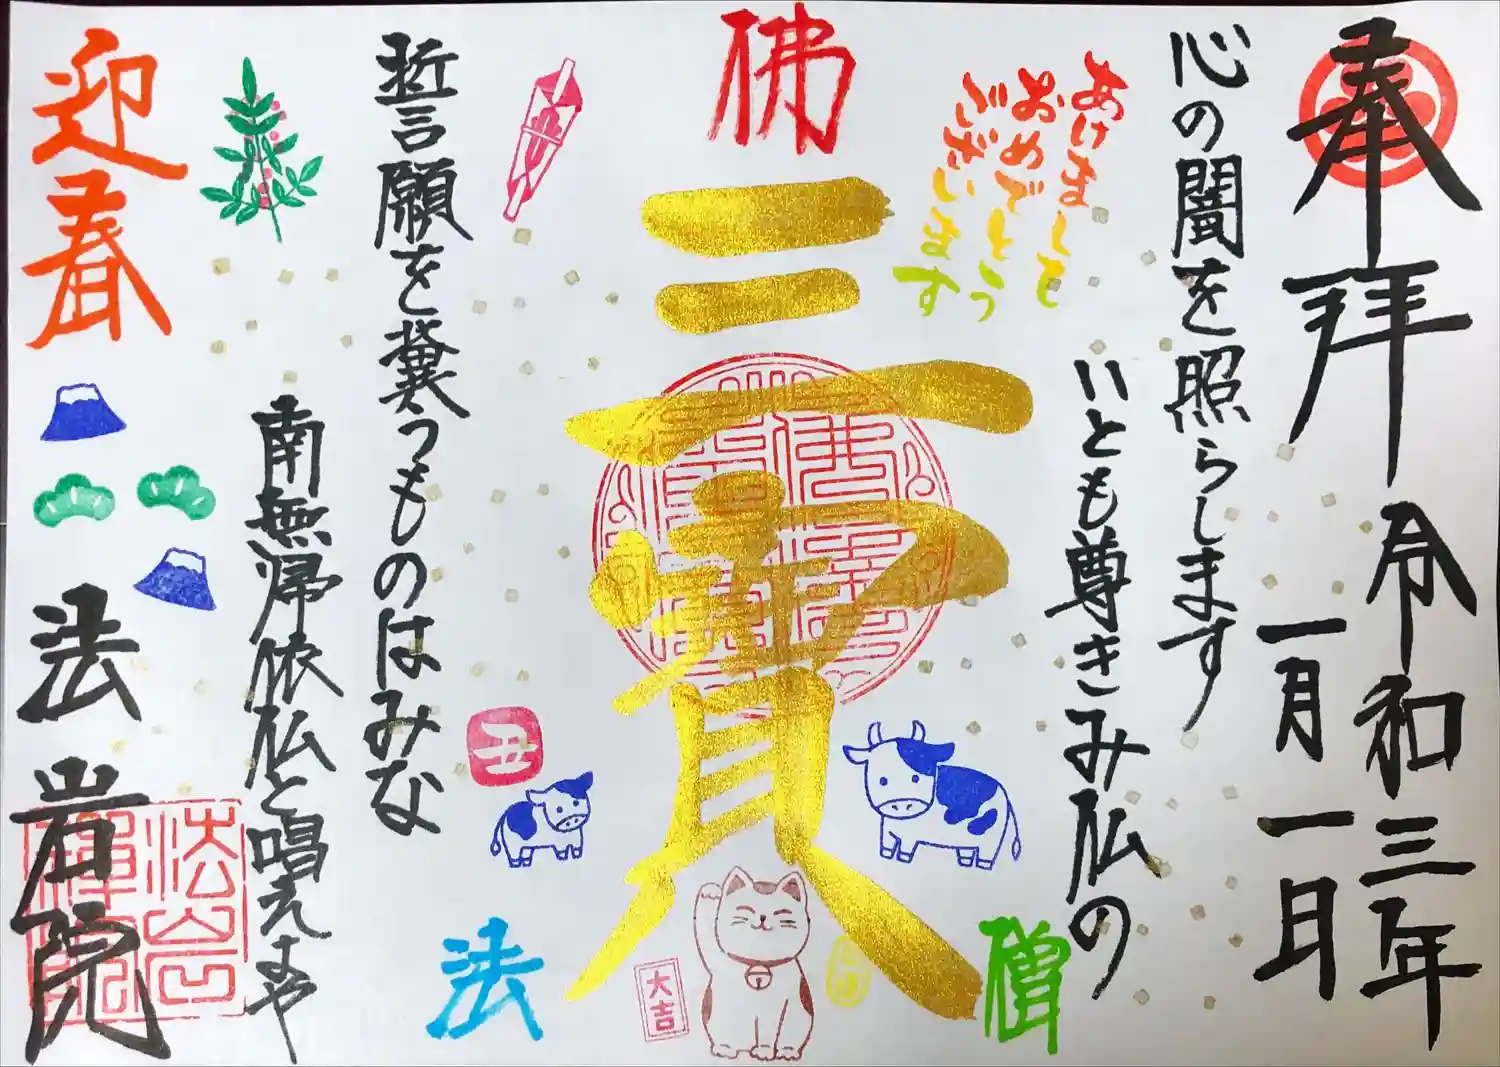 奉拝
令和三年
一月一日
心の闇を照らします
いとも尊きみ仏の
あけまして
おめでとう
ございます
佛
三寶
僧
法
大吉
丑
誓願を冀うものはみな
南無帰依仏と唱えよや
迎春
法岩院
法岩
禪院